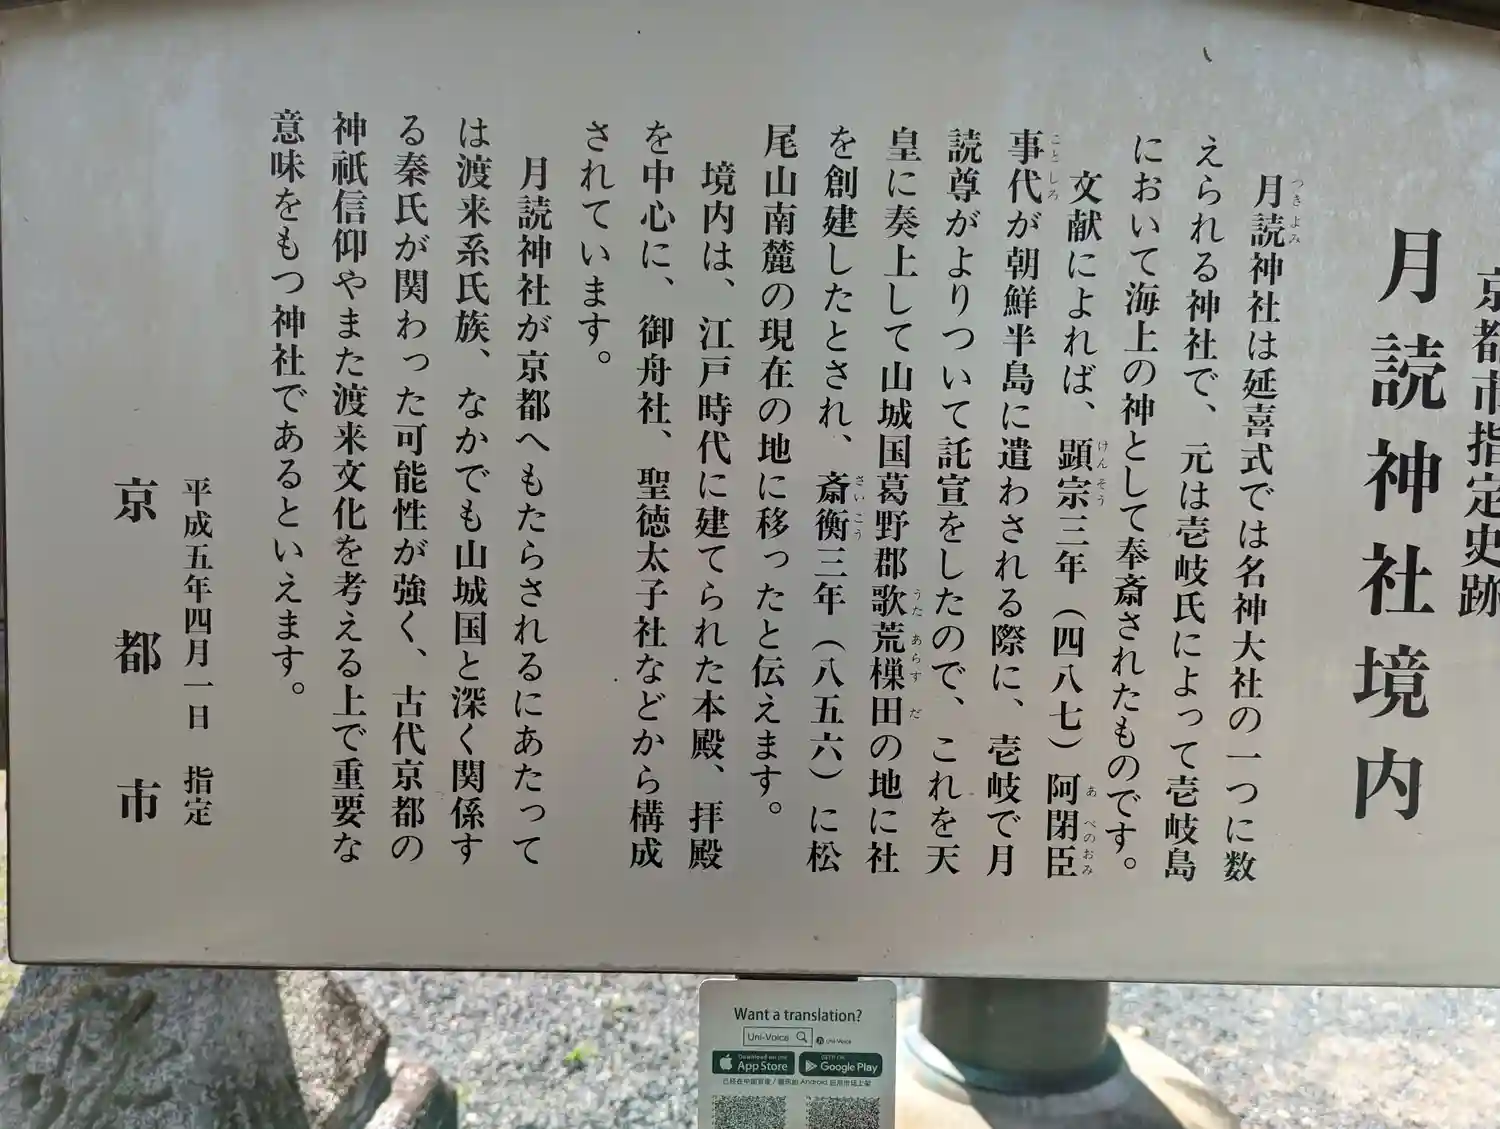 京都市指定史跡
月読神社境内
月読神社は延喜式では名神大社の一つに数
つきよみ
えられる神社で、元は壱岐氏によって壱岐島
において海上の神として奉斎されたものです。
文献によれば、顕宗三年（四八七）阿閉臣
けんそう
あべのおみ
事代が朝鮮半島に遣わされる際に、壱岐で月
ことしろ
読尊がよりついて託宣をしたので、これを天
皇に奏上して山城国葛野郡歌荒樔田の地に社
うたあらすだ
を創建したとされ、斎衡三年（八五六）に松
さいこう
尾山南麓の現在の地に移ったと伝えます。
境内は、江戸時代に建てられた本殿、拝殿
を中心に、御舟社、聖徳太子社などから構成
されています。
月読神社が京都へもたらされるにあたって
は渡来系氏族、なかでも山城国と深く関係す
る秦氏が関わった可能性が強く、古代京都の
神祇信仰やまた渡来文化を考える上で重要な
意味をもつ神社であるといえます。
平成五年四月一日　指定
京都市
Want a translation?
Uni-Voice
Uni-Voice
Download on the
App Store
GET IT ON
Google Play